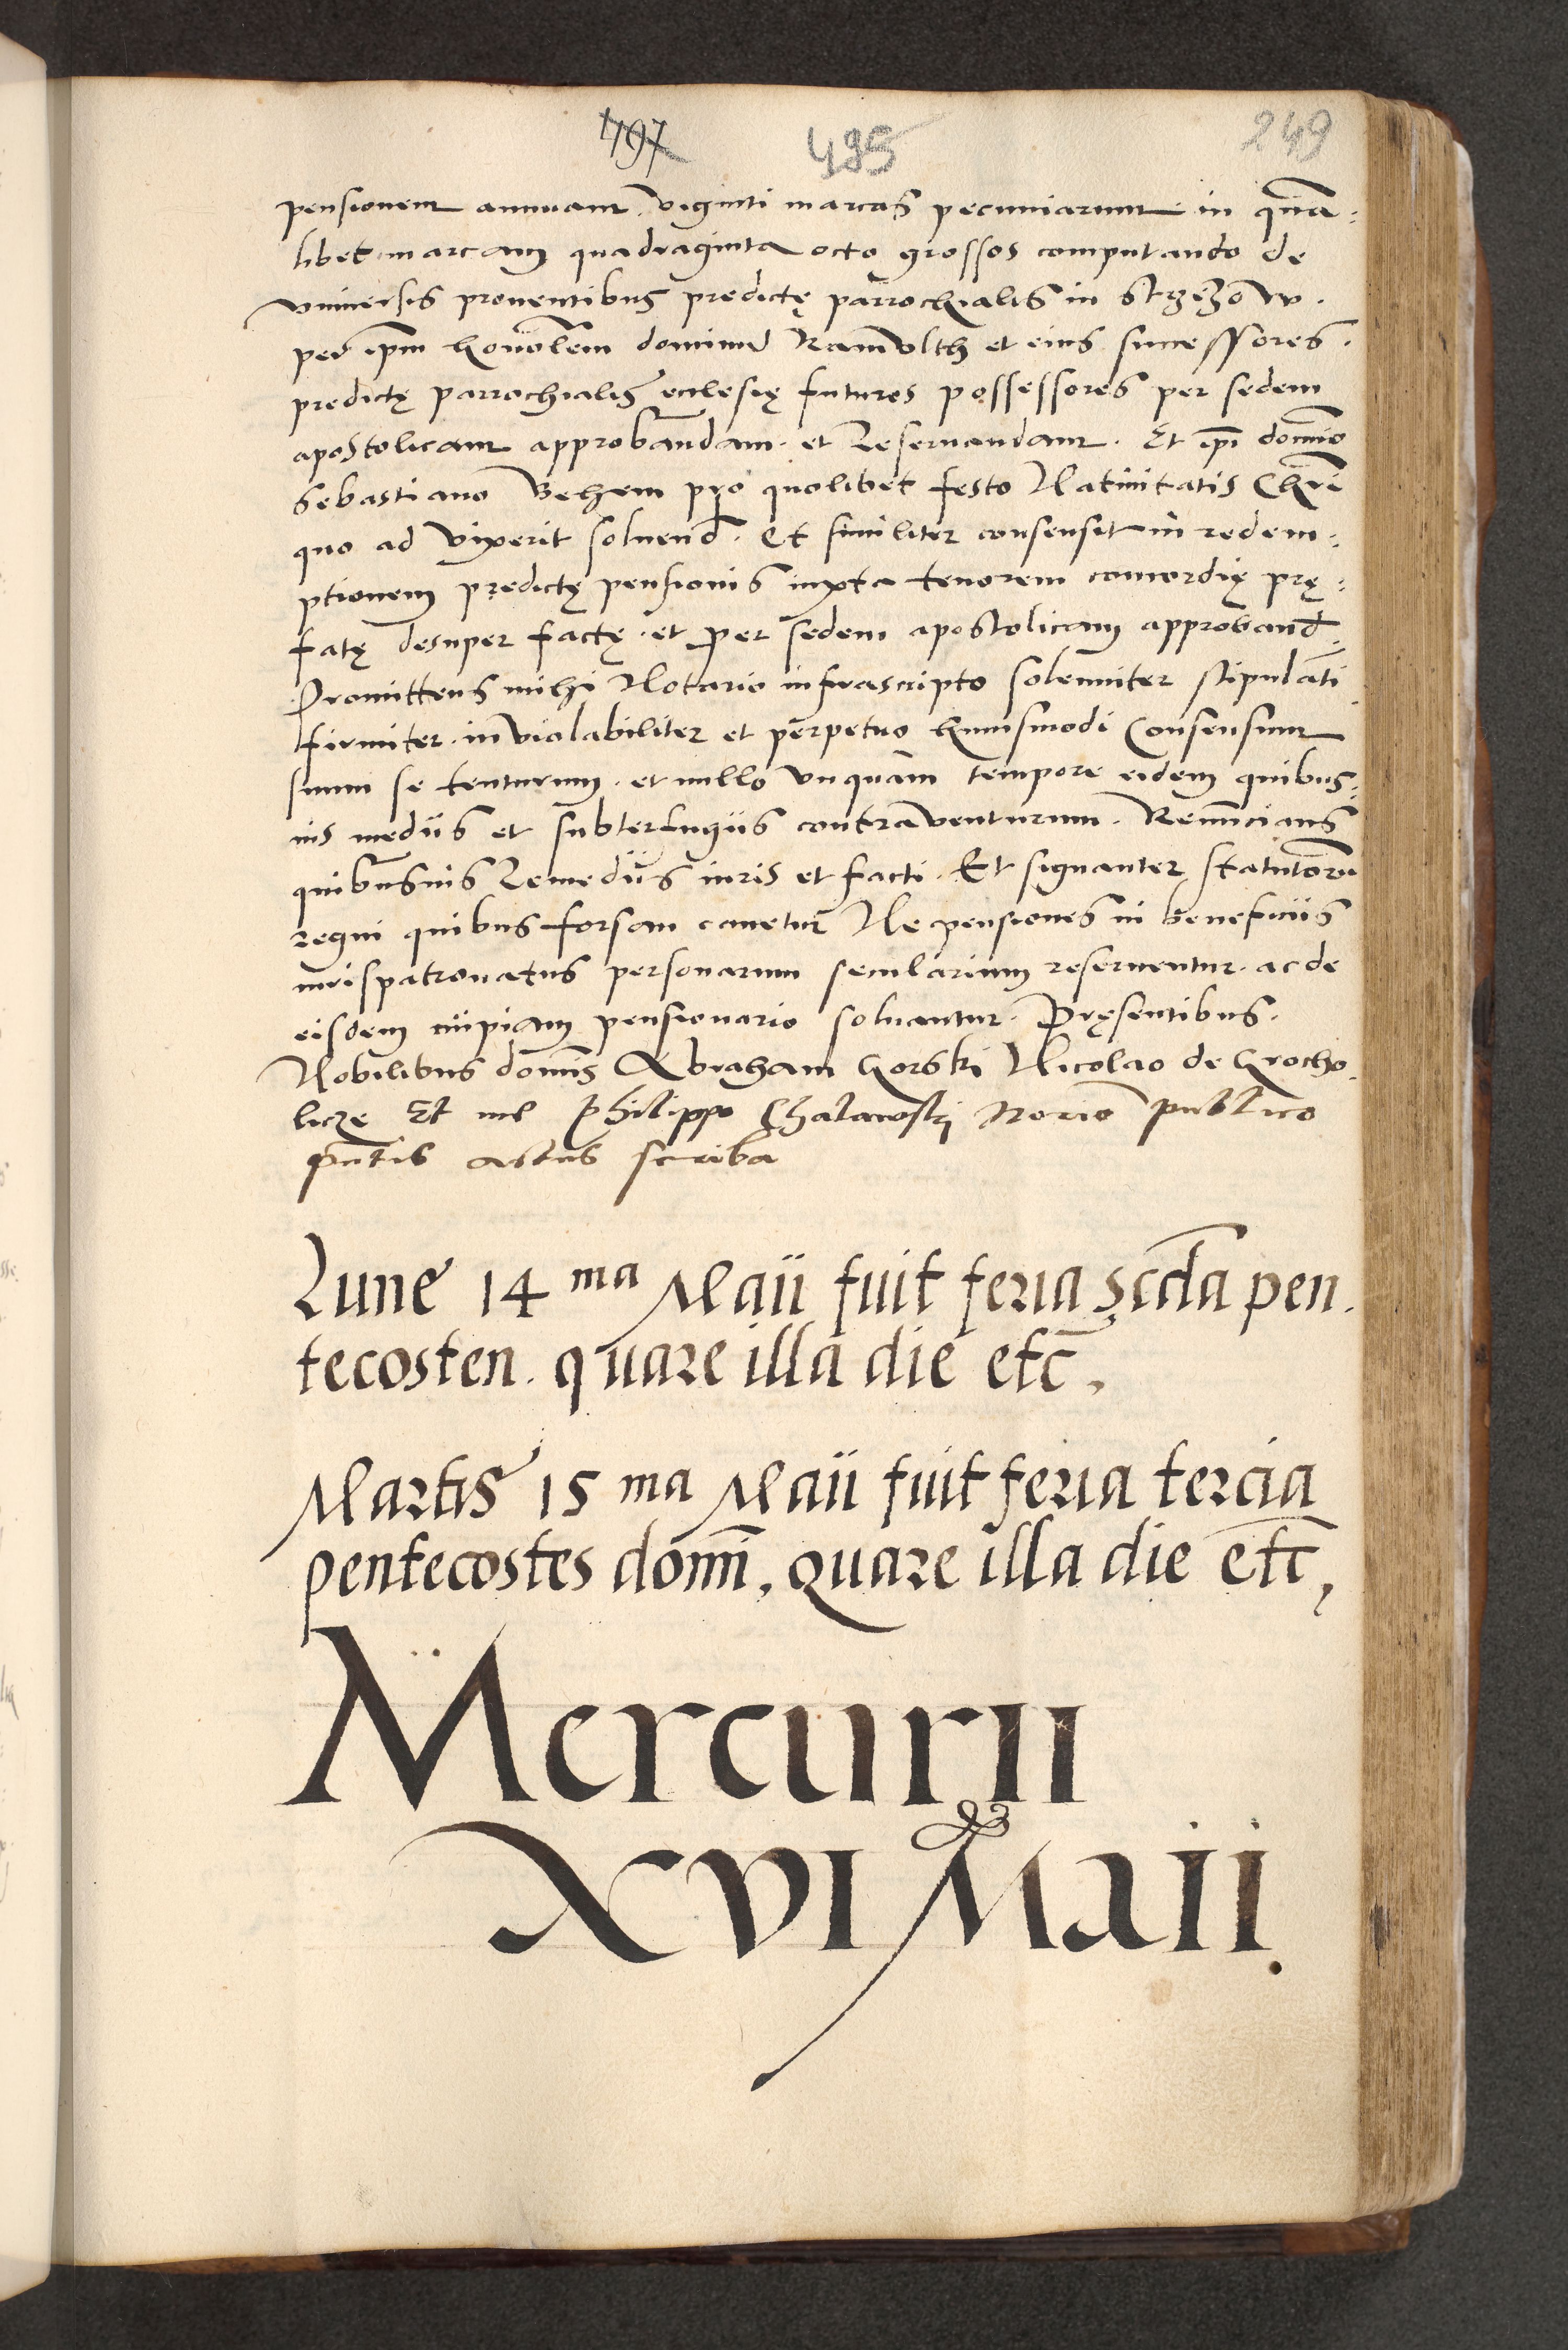 797 495 249
pensionem annuam. viginti marcas pecuniarum. in quã=
libet marcam quadraginta octo grossos computando de
vniuersis prouentibus predictę parrochialis in Strzezow.
per ipm honolem dominũ Ramvlth et eius successores.
predictę parrochialis ecclesię futuros possessores per sedem
apostolicam approbandam. et Reseruandam. Et ipi domĩo
Sebastiano Behem pro quolibet festo Natiuitatis Chrĩ
quo ad vixerit soluend. Et similiter consensit in redem=
ptionem predictę pensionis iuxta tenorem concordię prę=
fatę desuper factę. et per sedem apostolicam approband
Promittens mihi Notario infrascripto solenniter stipulãti
firmiter. inviolabiliter et perpetuo huiusmodi Consensum
suum se tenturum. et nullo vnquam tempore eidem quibus=
uis medijs et subterfugijs contrauenturum. Renuncians
quibusuis Remedijs iuris et facti. Et signanter statutorũ
regni quibus forsan cauetur Ne pensiones in beneficijs
iurispatronatus personarum secularium reseruentur. ac de
eisdem cuipiam pensionario soluantur. Pręsentibus.
Nobilibus domĩs Abraham Gorski Nicolao de Grocho
licze Et me Philippo Norio publico
pntis actus scriba
Lune 14 ma Maii fuit feria scda pen.
tecosten. quare illa die etc,
Martis 15 ma Maii fuit feria tercia
pentecostes domĩ, quare illa die etc,
Mercurii
XVI Maii.